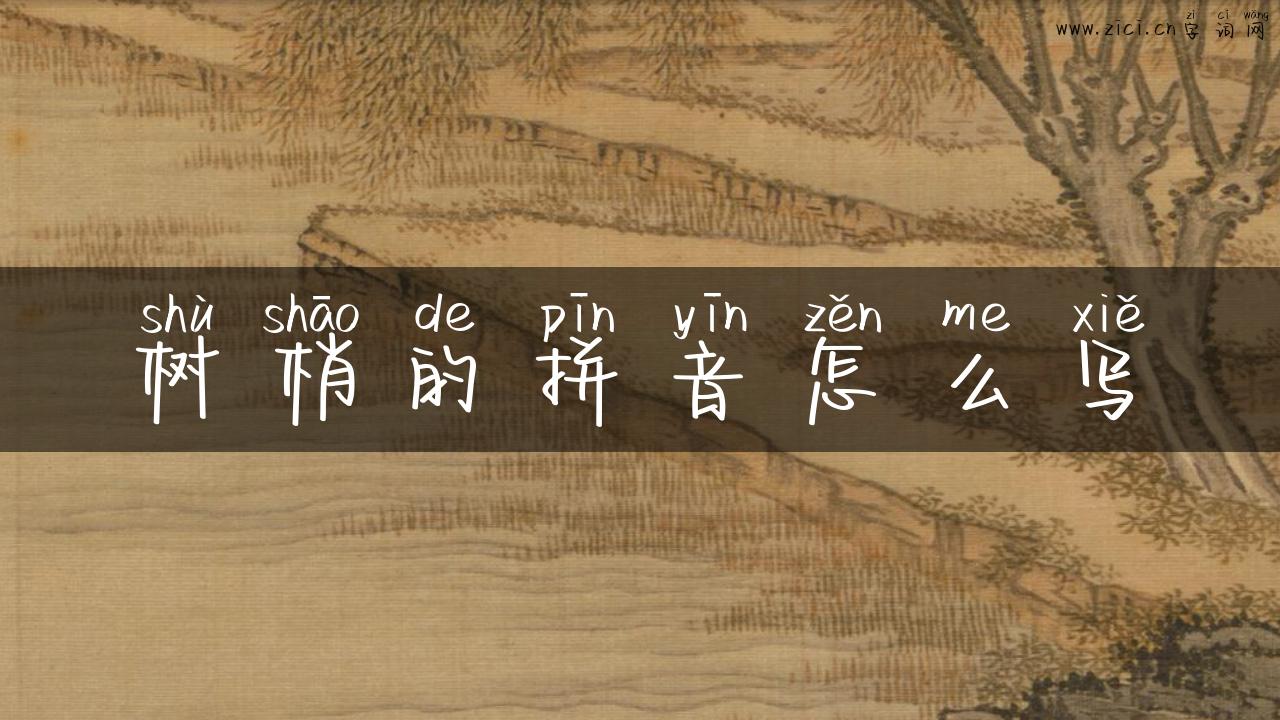 zì cí wǎng
www.zici.cn字词网
shù shāo de pīn yīn zěn me xiě
树梢的拼音怎么写